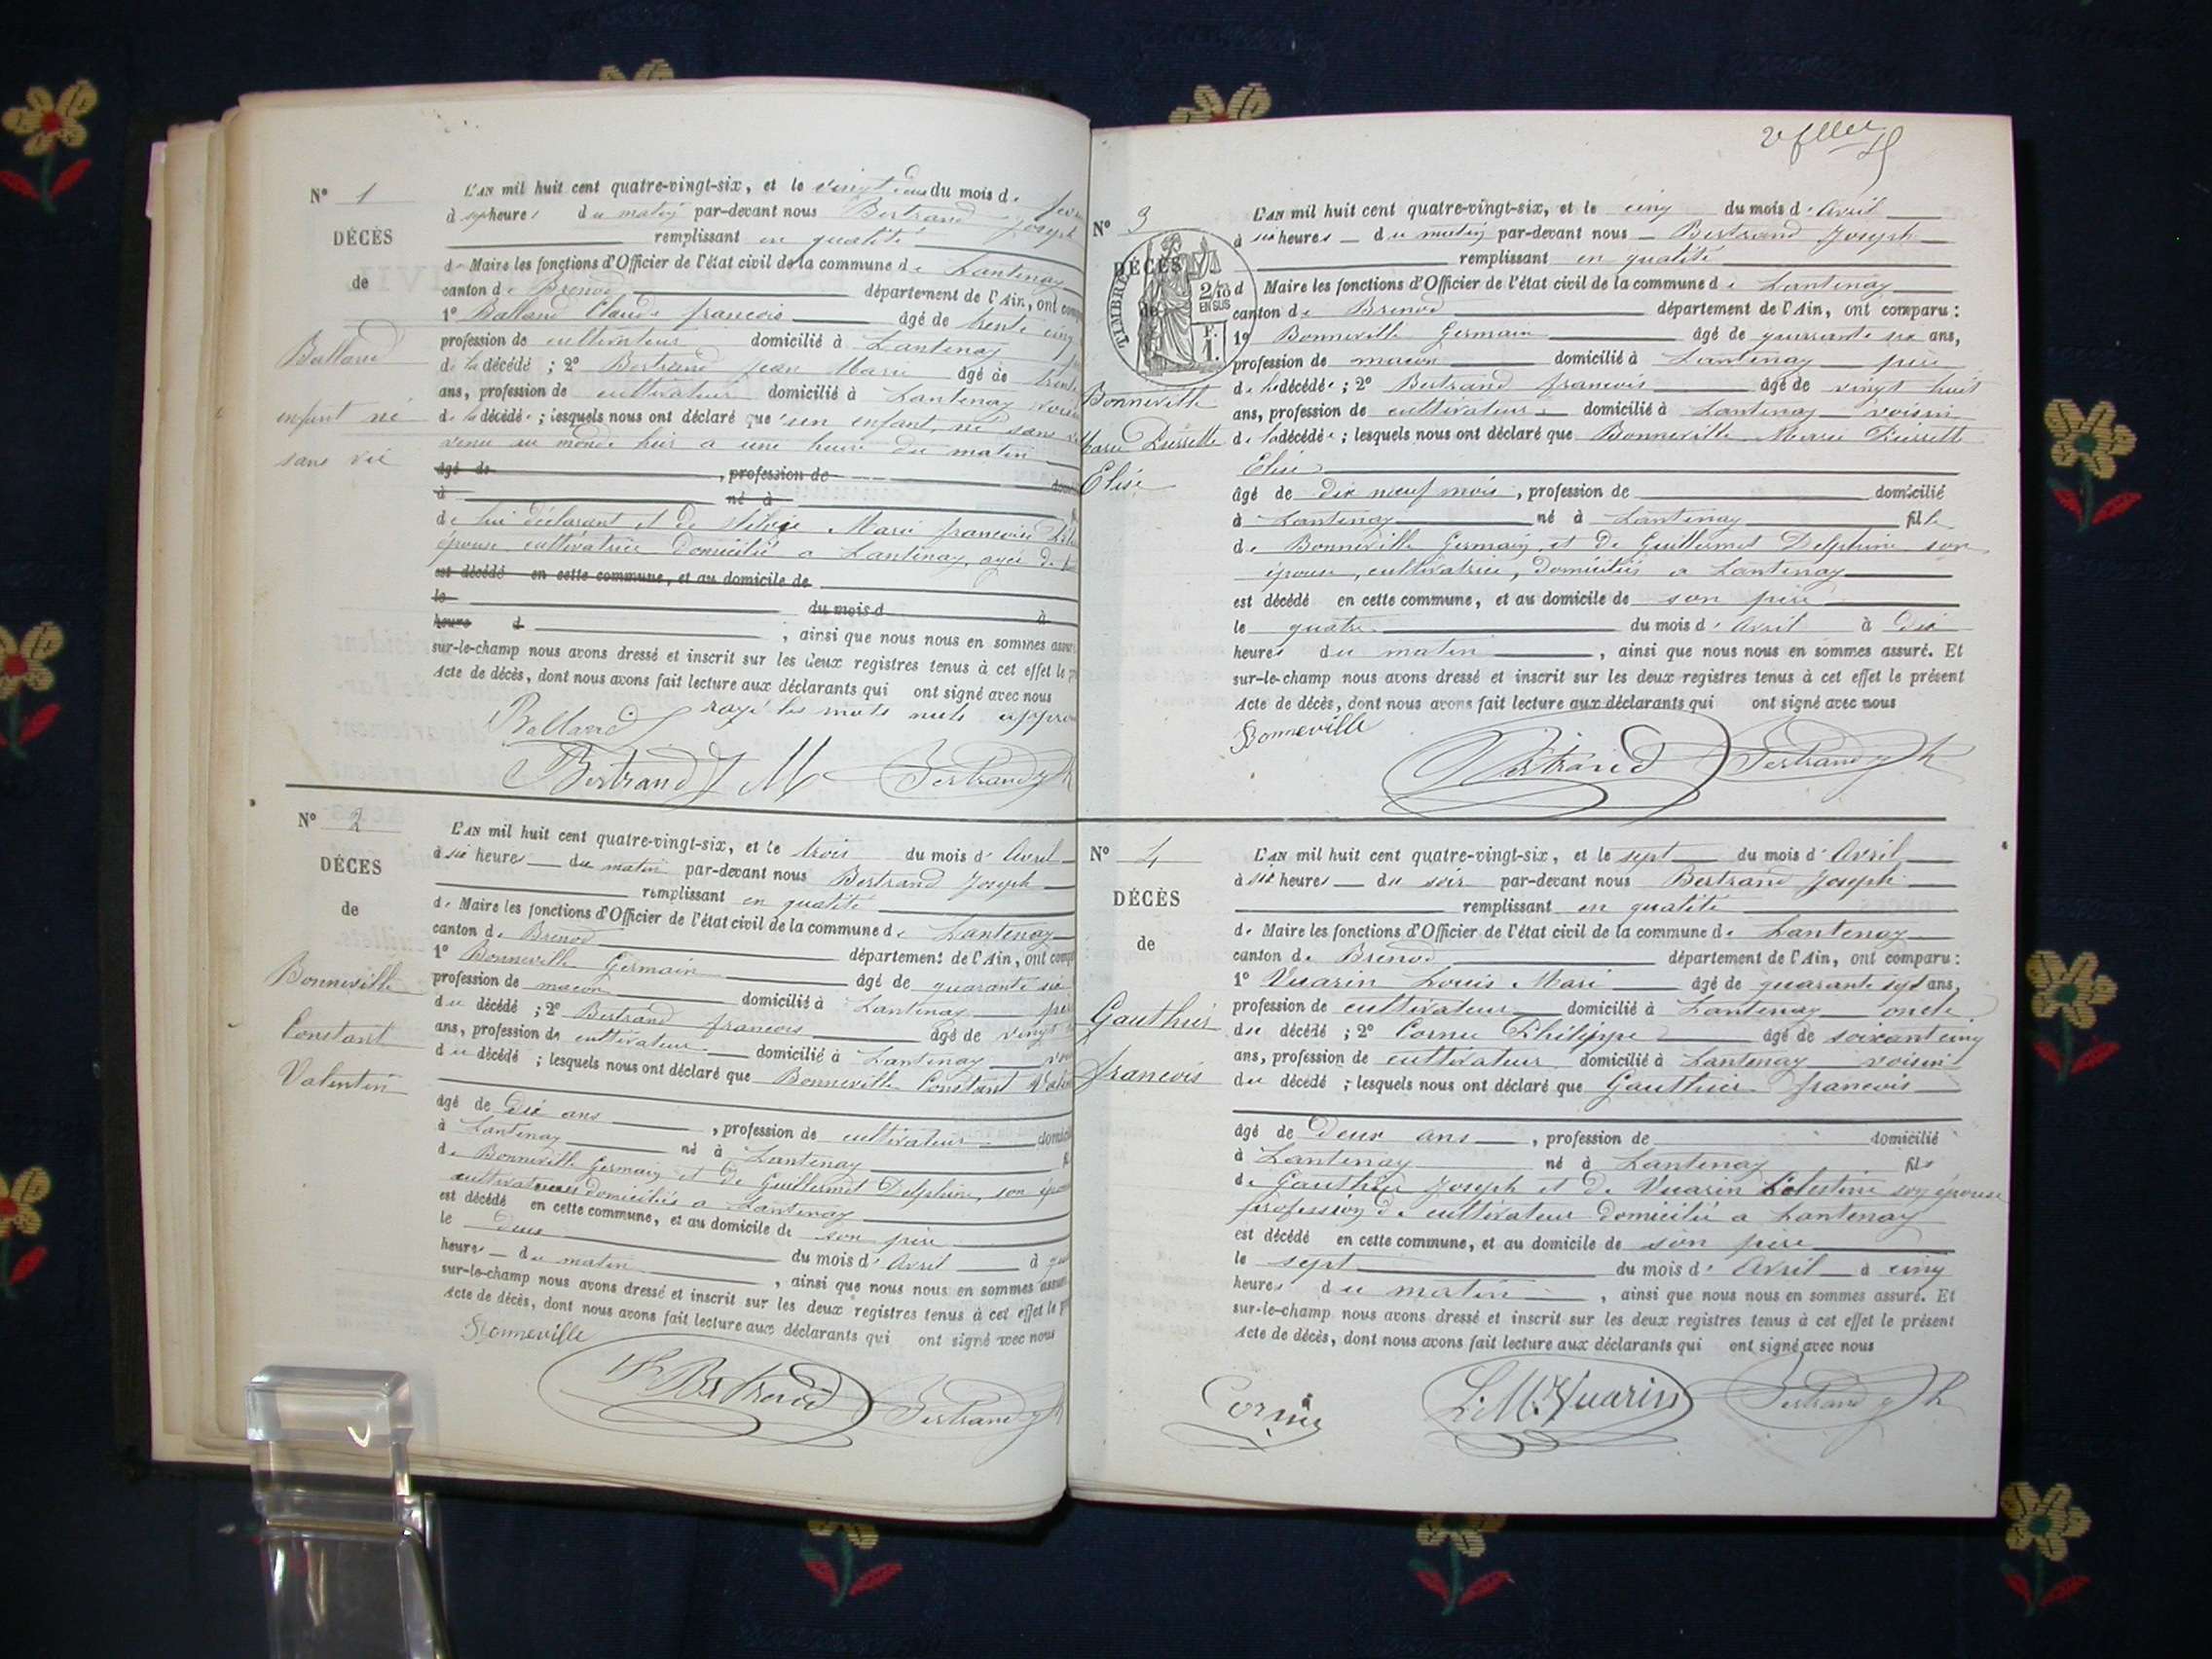 N° 1
DÉCÈS
de
Balland
enfant né
sans vie
L'AN mil huit cent quatre-vingt-six, et le vingt deux du mois de
à sept heures du matin par-devant nous Bertrand Joseph
remplissant en qualité
de Maire les fonctions d'Officier de l'état civil de la commune de Lantenay
canton de Brenod département de l'Ain, ont
1° Balland Claude francois âgé de trente cinq
profession de cultivateur domicilié à Lantenay
de la décédé ; 2° Bertrand Jean Marie âgé de trente
ans, profession de cultivateur domicilié à Lantenay
de la décédé ; lesquels nous ont déclaré que un enfant né sans
venu au monde hier a une heure du matin
âgé de , profession de
à né à
de lui déclarant et de Marie francoise
épouse cultivatrice domicilié a Lantenay, agée de
est décédé en cette commune, et au domicile de
le du mois d à
heure d , ainsi que nous nous en sommes
sur-le-champ nous avons dressé et inscrit sur les deux registres tenus à cet effet le
Acte de décès, dont nous avons fait lecture aux déclarants qui ont signé avec nous
rayé les mots nuls
Balland
Bertrand J M Bertrand Jh
N° 2
DÉCÈS
de
Bonneville
Constant
Valentin
L'AN mil huit cent quatre-vingt-six, et le trois du mois d'Avril
à six heures du matin par-devant nous Bertrand Joseph
remplissant en qualité
de Maire les fonctions d'Officier de l'état civil de la commune de Lantenay
canton de Brenod département de l'Ain, ont
1° Bonneville Germain âgé de quarante six
profession de macon domicilié à Lantenay père
du décédé ; 2° Bertrand francois âgé de vingt
ans, profession de cultivateur domicilié à Lantenay
du décédé ; lesquels nous ont déclaré que Bonneville Constant
âgé de Dix ans , profession de cultivateur
à Lantenay né à Lantenay
de Bonneville Germain et de Guillermet Delphine, son
cultivateurs domiciliés a Lantenay
est décédé en cette commune, et au domicile de son père
le deux du mois d'Avril à
heures du matin , ainsi que nous nous en sommes
sur-le-champ nous avons dressé et inscrit sur les deux registres tenus à cet effet le
Acte de décès, dont nous avons fait lecture aux déclarants qui ont signé avec nous
Bonneville
Bertrand Bertrand Jh
N° 3
DÉCÈS
de
TIMBRE
2/10
EN SUS
F.
1.
Bonneville
Marie
Elise
L'AN mil huit cent quatre-vingt-six, et le cinq du mois d'Avril
à six heures du matin par-devant nous Bertrand Joseph
remplissant en qualité
d Maire les fonctions d'Officier de l'état civil de la commune de Lantenay
canton de Brenod département de l'Ain, ont comparu :
1° Bonneville Germain âgé de quarante six ans,
profession de macon domicilié à Lantenay père
de la décédée ; 2° Bertrand francois âgé de vingt huit
ans, profession de cultivateur domicilié à Lantenay voisin
de la décédée ; lesquels nous ont déclaré que Bonneville Marie
Elise
âgé de dix neuf mois , profession de domicilié
à Lantenay né à Lantenay fille
de Bonneville Germain et de Guillermet Delphine son
épouse, cultivatrice, domiciliés a Lantenay
est décédé en cette commune, et au domicile de son père
le quatre du mois d'Avril à Dix
heures du matin , ainsi que nous nous en sommes assuré. Et
sur-le-champ nous avons dressé et inscrit sur les deux registres tenus à cet effet le présent
Acte de décès, dont nous avons fait lecture aux déclarants qui ont signé avec nous
Bonneville
Bertrand Bertrand Jh
N° 4
DÉCÈS
de
Gauthier
francois
L'AN mil huit cent quatre-vingt-six, et le sept du mois d'Avril
à six heures du soir par-devant nous Bertrand Joseph
remplissant en qualité
de Maire les fonctions d'Officier de l'état civil de la commune de Lantenay
canton de Brenod département de l'Ain, ont comparu :
1° Vuarin Louis Marie âgé de quarante sept ans,
profession de cultivateur domicilié à Lantenay oncle
du décédé ; 2° Cornu Philippe âgé de soixant cinq
ans, profession de cultivateur domicilié à Lantenay voisin
du décédé ; lesquels nous ont déclaré que Gauthier francois
âgé de Deux ans , profession de domicilié
à Lantenay né à Lantenay fils
de Gauthier Joseph et de Vuarin Célestine son épouse
profession de cultivateur domicilié a Lantenay
est décédé en cette commune, et au domicile de son père
le sept du mois d'Avril à cinq
heures du matin , ainsi que nous nous en sommes assuré. Et
sur-le-champ nous avons dressé et inscrit sur les deux registres tenus à cet effet le présent
Acte de décès, dont nous avons fait lecture aux déclarants qui ont signé avec nous
Cornu L. M. Vuarin Bertrand Jh